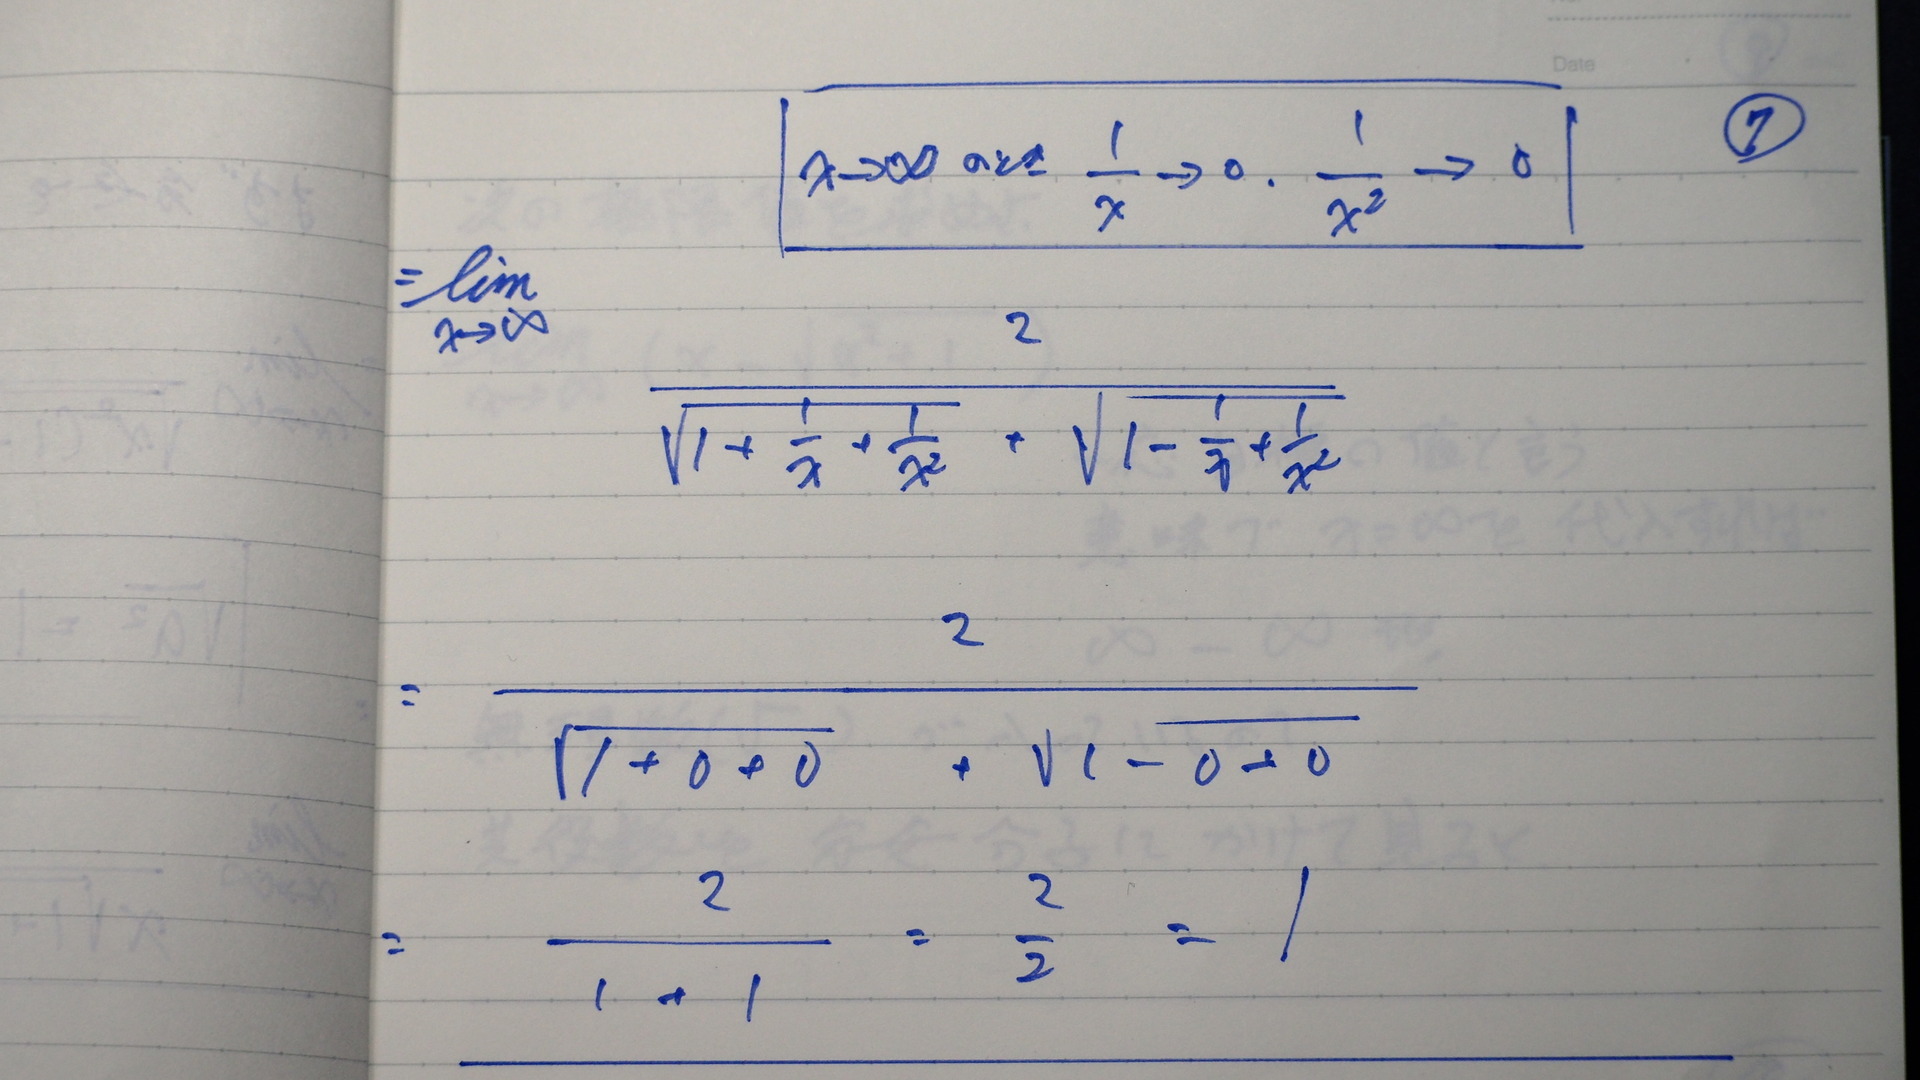 Date
⑦
x→∞ のとき 1/x → 0. 1/x² → 0
= lim x→∞ 2 / (√(1 + 1/x + 1/x²) + √(1 - 1/x + 1/x²))
= 2 / (√(1 + 0 + 0) + √(1 - 0 + 0))
= 2 / (1 + 1) = 2/2 = 1